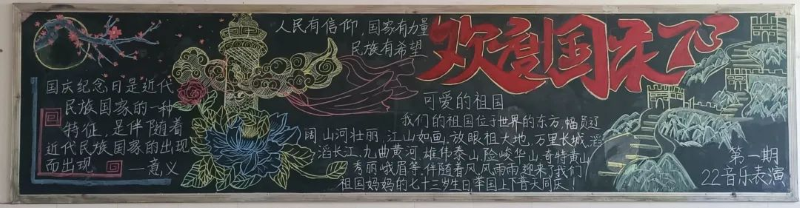 国庆纪念日是近代
民族国家的一种
特征，是伴随着
近代民族国家的出现
而出现 —意义
人民有信仰，国家有力量
民族有希望
欢度国庆
可爱的祖国
我们的祖国位于世界的东方，幅员辽
阔，山河壮丽，江山如画，放眼祖大地，万里长城，滔
滔长江，九曲黄河，雄伟泰山，险峻华山，奇特黄山，
秀丽峨眉等，伴随着风风雨雨，迎来了我们
祖国妈妈的七十三岁生日，举国上下普天同庆！
第一期
22音乐表演